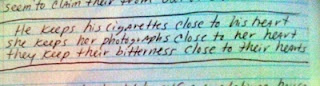 seem to claim their from
He keeps his cigarettes close to his heart
she keeps her photographs close to her heart
they keep their bitterness close to their hearts